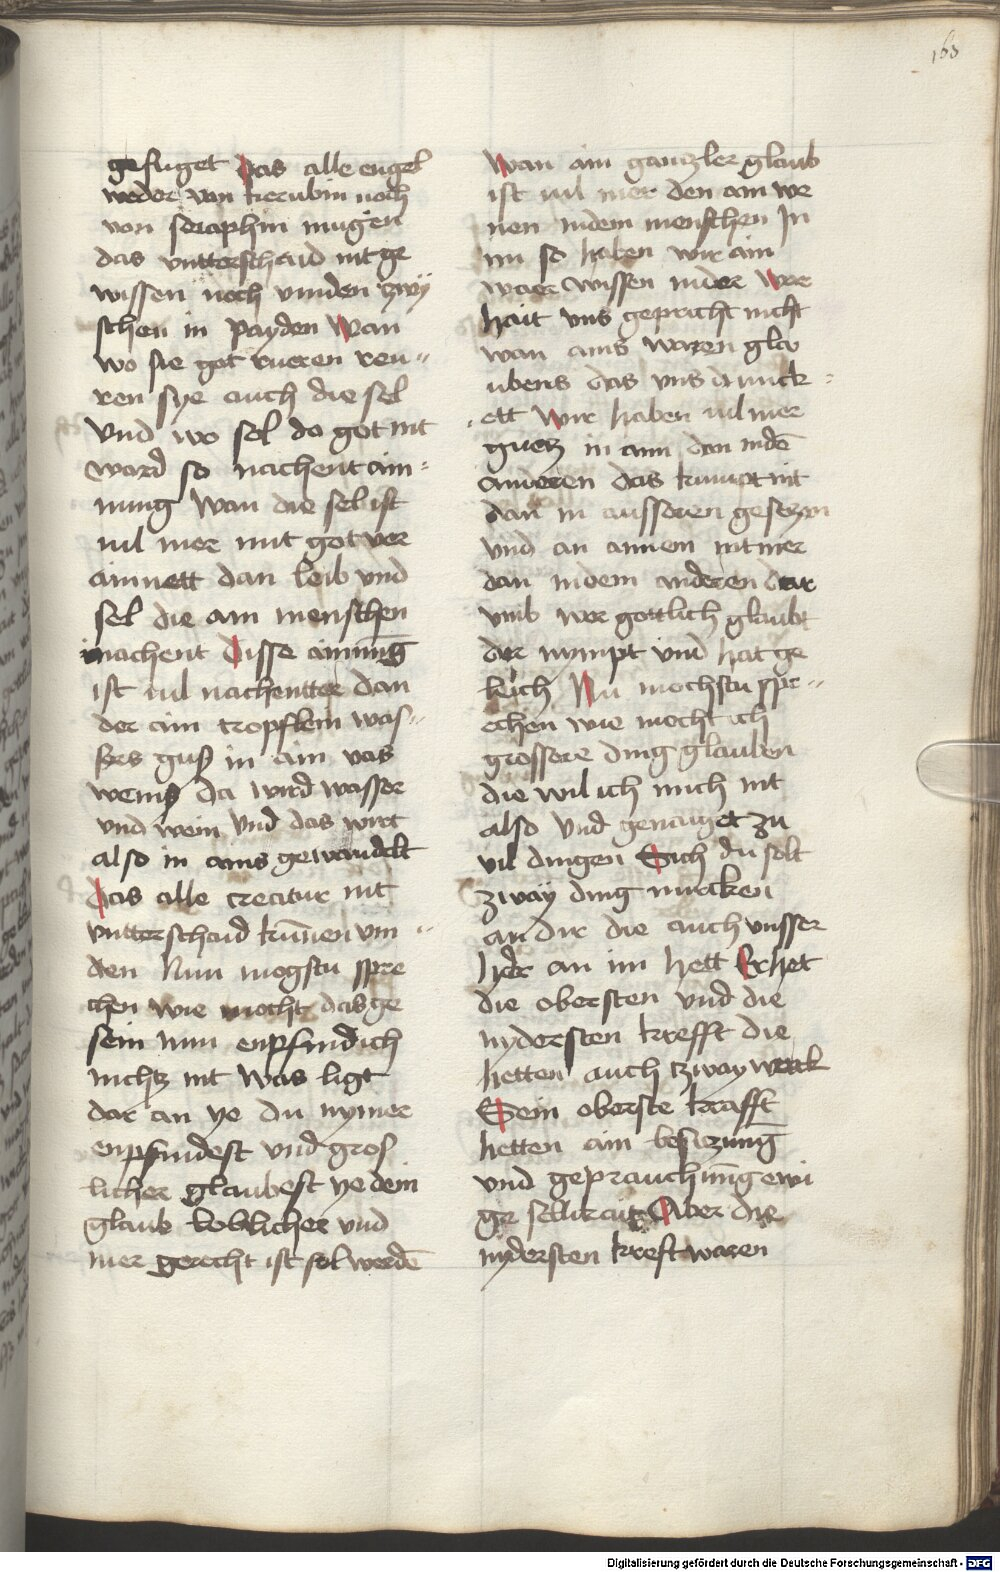 163
gefuget Das alle engel
weder von kerubin noch
von seraphin mugen
das vntterschaid nit ge
wissen noch vinden zwÿ
schen in payden Wan
wo sie got rueren ren"
ren sye auch die sel
Vnd wo sel do got nit
ward so nachent ain=
nung Wan die sel ist
uil mer mit got ver
ainnett dan leib vnd
sel die ain menschen
machent Disse ainung
ist uil nachentter dan
der ain tropflein was"
sers guß in ain vas
weins Da wird wasser
vnd wein Vnd das wirt
also in ains gewandelt
Das alle creatur nit
vntterschaid kunen vin"
den Nun mogstu spre
chen wie mocht das ge
sein nun enpfind ich
nichtz nit Was ligt
dar an ye du nymer
enpfindest vnd gros
licher glaubest ye dein
glaub loblicher vnd
mer gerecht ist sol werdē
Wan ain gantzler glaub
ist uil mer den ain we
nen indem menschen In
im so haben wir ain
waer wissen inder Wer
hait vns gepricht nicht
wan ains waren glo
ubens das vns dunck=
ett Wir haben uil mer
guetz in aim dan indē
anderen das kumpt nit
dan in aussoren gesetzen
vnd an ainem nit mer
dan indem anderen Dar
vmb wer gottlich glaubt
der nympt vnd hat ge
leich Nu mochstu spre"
echen wie mocht ich
grossere ding glauben
die wil ich mich nit
also Vnd genaiget zu
vil dingen Sich du solt
zwaÿ ding mircken
an dir die auch vnsser
her an im hett Er het
die obersten vnd die
nydersten krefft die
hetten auch tzway werck
Sein oberste krafft
hetten ain besitzung
vnd geprauchung ewi
ger sellikait Aber die
nydersten kreft waren
Digitalisierung gefördert durch die Deutsche Forschungsgemeinschaft - DFG